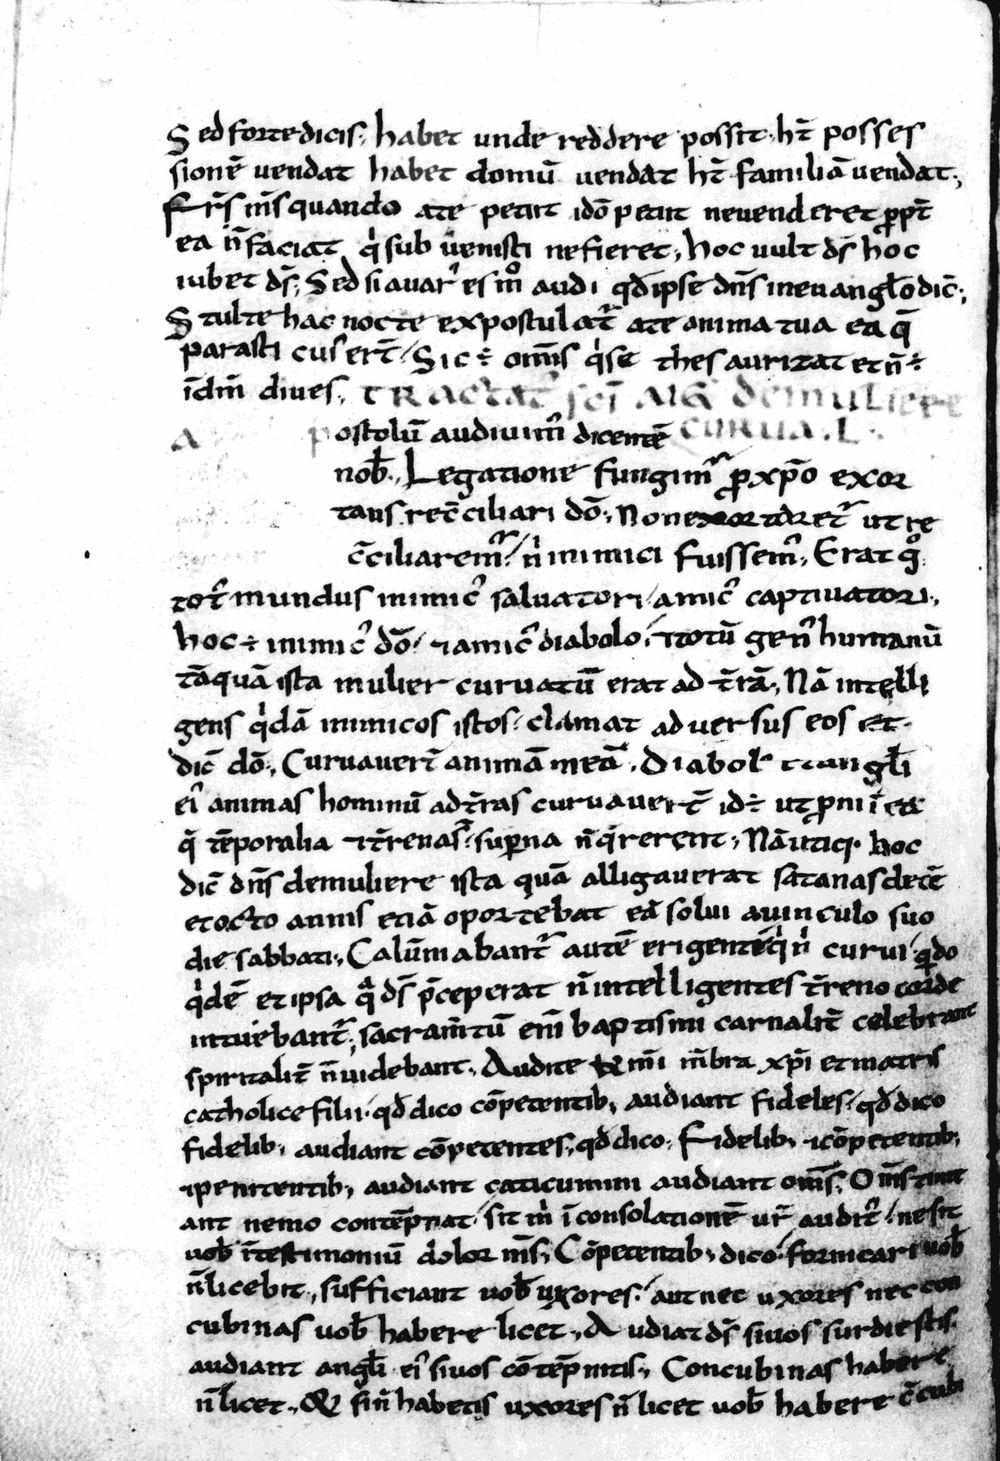 Sed forte dicis, habet unde reddere possit, ht̄ posses
sionē vendat habet domū vendat ht̄ familiā vendat;
Fr̄s m̄s quando a te petiit idō petiit ne venderet ꝓpt̄
ea n̄ faciat q̍ subvenisti ne fieret, hoc vult d̄s hoc
iubet d̄s; Sed si avar᾽ es mᵒ audi qd̄ ipse dn̄s in evangl̄o dic̄;
Stulte hac nocte expostulat᷑ a te anima tua ea q̄
parasti cus er̄t, Sic ÷ om̄s q̍ se thesaurizat et n̄ ÷
ī dm̄ dives, TRACTAT᾽ SC̄I AUḠ DE MULIERE
CURVA.
Apostolū audivim᾽ dicentē
nob̄, Legatione fungim᷑ ꝓ xp̄o exor
tans rec̄ciliari dō, Non exortaret᷑ ut re
c̄ciliarem᷑, n̍ inimici fuissem᾽, Erat gᵒ
tot᾽ mundus inimic᾽ salvatori, amic᾽ captivatori,
hoc ÷ inimic᾽ dō, ⁊ amic᾽ diabolo, ⁊ totū gen᾽ humanū
tāquā ista mulier curvatū erat ad t̄rā, Nā intelli
gens q̍dā inimicos istos, clamat adversus eos et
dic̄ dō, Curvaver̄t animā meā, Diabol᾽ ⁊ angl̄i
ei᾽ animas hominū ad t̄ras curvaver̄t id ÷ ut ꝓni ī ea
q̄ tēporalia ⁊ t̄rena s̄ superna n̄ q̄rerent, Nā utiq; hoc
dic̄ dn̄s de muliere ista quā alligaverat satanas decē
et octo annis etiā oportebat eā solvi a vinculo suo
die sabbati, Calūniabant᷑ autē erigentē q̍ n̍ curvi, qn̄do
q̍dē et ipsa q̄ d̄s p̄ceperat n̄ intelligentes t̄reno corde
intuebant᷑, sacram̄tū eni᾽ baptismi carnalit̄ celebrant
spiritalit̄ n̄ videbant, Audite m̄i m̄bra xp̄i et matris
catholice filii, qd̄ dico cōpetentib; audiant fideles, qd̄ dico
fidelib; audiant cōpetentes, qd̄ dico, Fidelib; ⁊ cōpetentib;
⁊ penitentib; audiant caticumini audiant om̄s, Om̄s time
ant nemo contēpnat, sit m̄ ī consolationē vr̄ audit᾽, ne sit
vob̄ ī testimoniū dolor m̄s, Cōpetentib; dico, fornicari vob̄
n̄ licebit, sufficiant vob̄ uxores, aut nec uxores nec con
cubinas vob̄ habere licet, Audiat d̄s si vos surdi estis,
audiant angl̄i ei᾽ si vos cōtēpnitis, Concubinas habere
n̄ licet, & si n̄ habetis uxores n̄ licet vob̄ habere c̄cubi